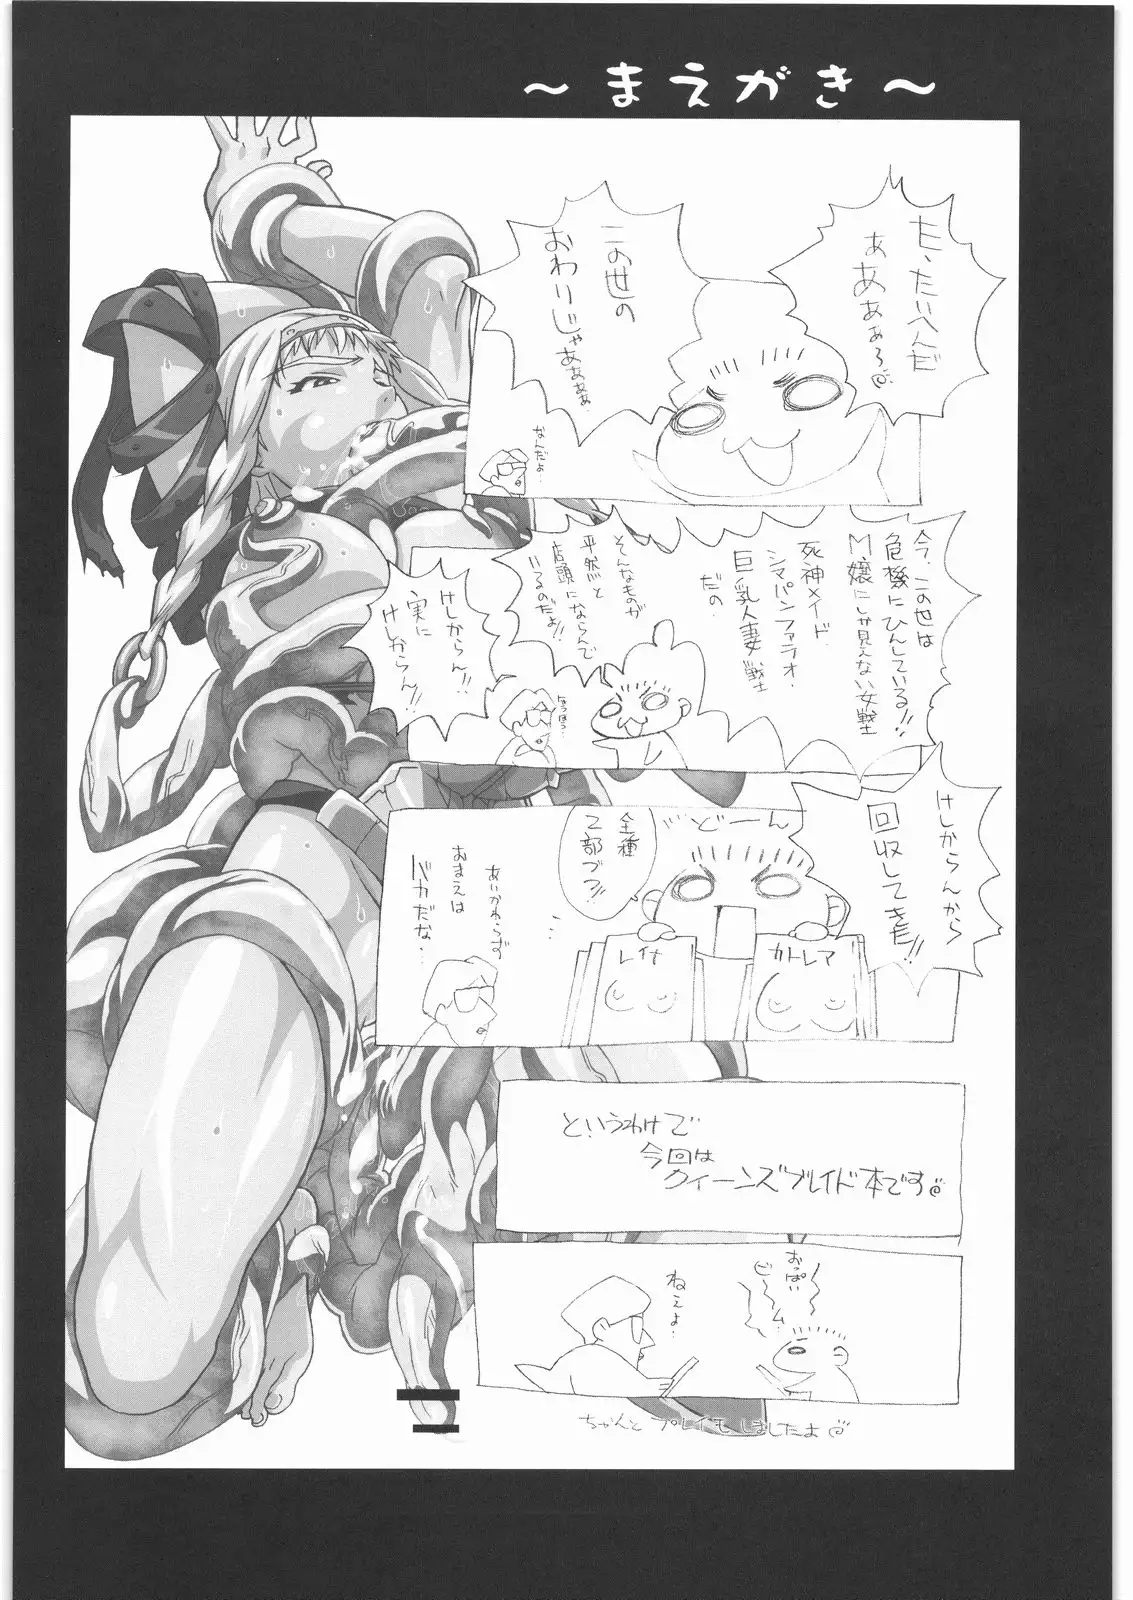 ～まえがき～
た、たいへんだ
あああぁぁ～
この世の
おわりじゃあああぁぁ
なんだよ…
今、この世は
危機にひんしている!!
M嬢にしか見えない女戦士
死神メイド、
シマパンファラオ・
巨乳人妻戦士
だの
そんなものが
平然と
店頭にならんで
いるのだよ!!
けしからん!!
実に
けしからん!!
ほうほう…
けしからんから
回収してきた!!
どーん
全種
2部づつ!!
レイナ
カトレア
あいかわらず
おまえは
バカだな…
というわけで
今回は
クィーンズブレイド本です
おっぱい
ビーム
ねぇよ…
ちゃんとプレイもしましたよ